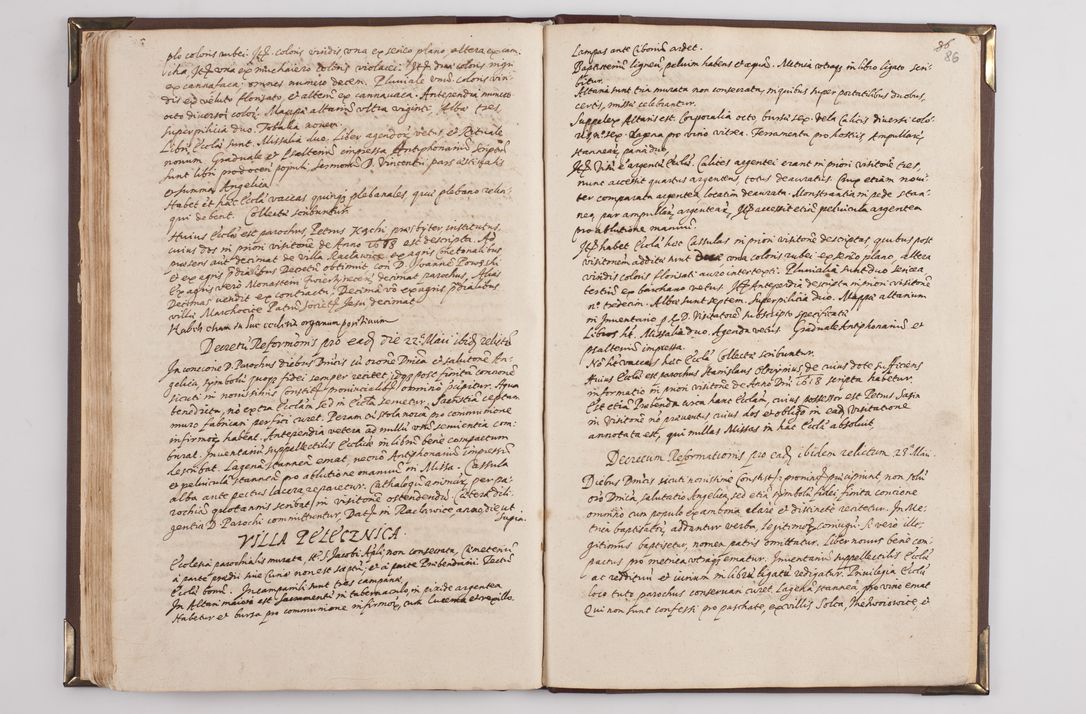 plo coloris rubei. Itẽ coloris viridis una ex serico plano altera ex cam-
cha, Itẽ una ex muchaiero coloris violacei. Itẽ duæ coloris nigri
ex cannafaca, omnes numero decem. Pluviale unũ coloris viri-
dis ex veluto florisato, et alterũ ex cannavaca. Antependia numero
octo diversi color. Mappæ altarium ultra viginti. Albæ tres,
superpilicia duo. Tobalia novem.
Libri Ecclæ sunt. Missalia duo. Liber agendor, vetus, et Rituale
novum Graduale et Psalterium impressa Antiphonarium scriptũ
sunt libri pro docen populi, sermones D. Vincentii pars æstivalis
et summa Angelica.
Habet et hæc Eccla vaccas quinq plebanales quas plebano relin-
qui debent. Collecta scribuntur.
Huius Ecclæ est parochus Petrus Kochi præsbyter institutus
cuius dos in priori visitõne de Anno 1618 est descripta. Ad
præsens aut decimat de villa Raclawice ex agris cmetonalibus
et ex agris prædialibus Depeti obtimuit con D. Joanne Porwski
Ex agris vero Monasterii Zwierzinecen decimat parochus, Alias
Decimas vendit ex contractu. Decima vo ex agris prædialibus
villæ Maichocice Patrũ Societ Jesu decimat.
Habet etiam in hac ecclesia organum positivum
Decretũ Reformonis pro eadẽ die 22 Maii ibid relictũ
In concone D. Parochus diebus Dnicis cũ orõne Dnica et salutone An-
gelica, symbolũ quoq fidei semper recitet, idq post finitã concone
sicuti in novissimis Constit provincialibus omnino præcipitur. Aqua
benedicta, nõ extra Ecclam sed in Eccla servetur. Sacristiæ ceptum
muro fabricam perfici curet. Peram cũ stola nova pro communione
infirmor, habeat. Antependia vetera ad nullũ usũ servientia com-
burat. Inventariũ suppellectilis Ecclicæ in librũ bene compactum
describat. Lagenã stanneã emat necnõ Antiphonariũ impressũ
et pelviculã stanneã pro ablutione manuum in Missa. Cassula
alba ante pectus lacera reparetur. Cathalogũ animar, per pa-
rochiã quotannis scribat, in visitone ostendendũ. Cætera dili-
gentiæ D. Parochi committuntur. Datũ in Raclawice anno, die ut
supra.
VILLA PELECZNICA.
Ecclesia parochialis murata, tit. S. Jacobi Apli, non consecrata, Cæmeteriũ
à parte prædii sive curiæ non est septũ, et à parte Præbendarii. Tectũ
Ecclæ bonũ. In campanili sunt tres campanæ.
In Altari maiore est Sacramentũ in tabernaculo in pixide argentea.
Habetur et bursa pro communione infirmor, cum lucerna et crepillo.
86
86
Lampas ante Ciboriũ ardet.
Baptisteriũ ligneũ pelvim habens et aquã. Metrica utraq in libro ligato scri-
bitur.
Altaria sunt tria murata non consecrata, in quibus super portatilibus duobus,
certis, missæ celebrantur.
Suppellex Altaris est. Corporalia octo bursæ sex vela Calicis diversi colo-
ris sex. Lagena pro vino vitrea. Ferramenta pro hostiis, Ampullarũ
stannear, paria duo.
Itẽ est argentũ Ecclæ. Calices argentei erant in priori visitone tres,
nunc accessit quartus argenteus, totus deauratus. Crux etiam novi-
ter comparata argentea, locatim deaurata. Monstrantia in pede stan-
nea, par ampullar, argentear, Itẽ accessit etiã pelvicula argentea
pro ablutione manuũ.
Itẽ habet Eccla hæc Cassulas in priori visitone descriptas quibus post
visitonem additæ sunt una coloris rubei ex serico plano, altera
viridis coloris florisati auro intertexti. Pluvialia sunt duo serica
tertiũ ex barchano vetus. Itẽ Antependia descripta in priori visitone
nº tredecim. Albæ sunt septem. Superpilicia duo. Mappæ altarium
in Inventario p. R. D. Visitatorẽ subscripto specificatæ.
Libros hẽ. Missalia duo. Agenda vetus Graduale Antiphonarium et
Psalterium impressa.
Nõ hẽ vaccas hæc Eccla Collecta scribuntur.
Huius Ecclæ est parochus Stanislaus Olivirius, de cuius dote sufficiens
informatio in priori visitone de Anno Dni 1618 scripta habetur.
Est etiã Præbenda circa hanc Ecclam, cuius possessor est Petrus Sasin
in visitone nõ præsens, cuius dos et obligo in eadẽ Visitatione
annotata est, qui nullas Missas in hac Eccla absolvit.
Decretum Reformationis pro eadẽ ibidem relictum. 23 Maii.
Diebus Dnicis sicuti novissimæ Constit proninc præcipiunt, non solũ
orõ Dnica, salutatio Angelica, sed etiã symbolũ fidei, finita concione
omnino cum populo ex ambona clarè et distinctè recitetur. In Me-
trica baptisator, addantur verba, legitimor, coniugũ: si vero ille-
gitimus baptisetur, nomen patris omittatur. Liber novus bene con-
pactus pro metrica utraq ematur. Inventariũ suppellectilis Ecclæ
ac reddituũ et iurium in librũ ligatũ redigatur. Privilegia Ecclæ
loco tuto parochus conservari curet. Lagenã stanneã pro vino emat
Qui non sunt confessi pro paschate, ex villis Solca, Niedwoiowice, et